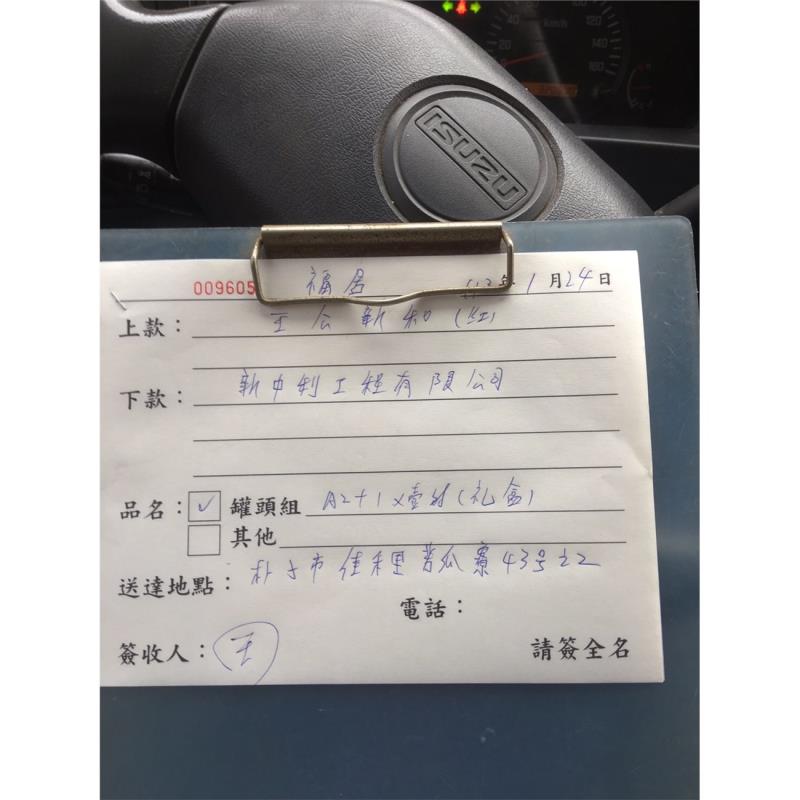 km/h
20 40 100 140 160
ISUZU
009605 福居 113年1月24日
上款：王公新和(红)
下款：新中利工程有限公司
品名：☑ 罐頭組 A2+1x壹对(礼盒)
☐ 其他
送達地點：朴子市佳禾里苦瓜寮43号之2
電話：
簽收人：王 請簽全名